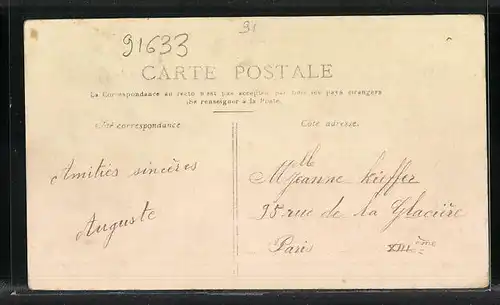 91633
91
CARTE POSTALE
La Correspondance au recto n'est pas acceptée par tous les pays étrangers
(Se renseigner à la Poste.
Côté correspondance.
Côté adresse.
Amitiés sincères
Auguste
Mlle Jeanne Kieffer
95 rue de la Glacière
Paris XIIIème